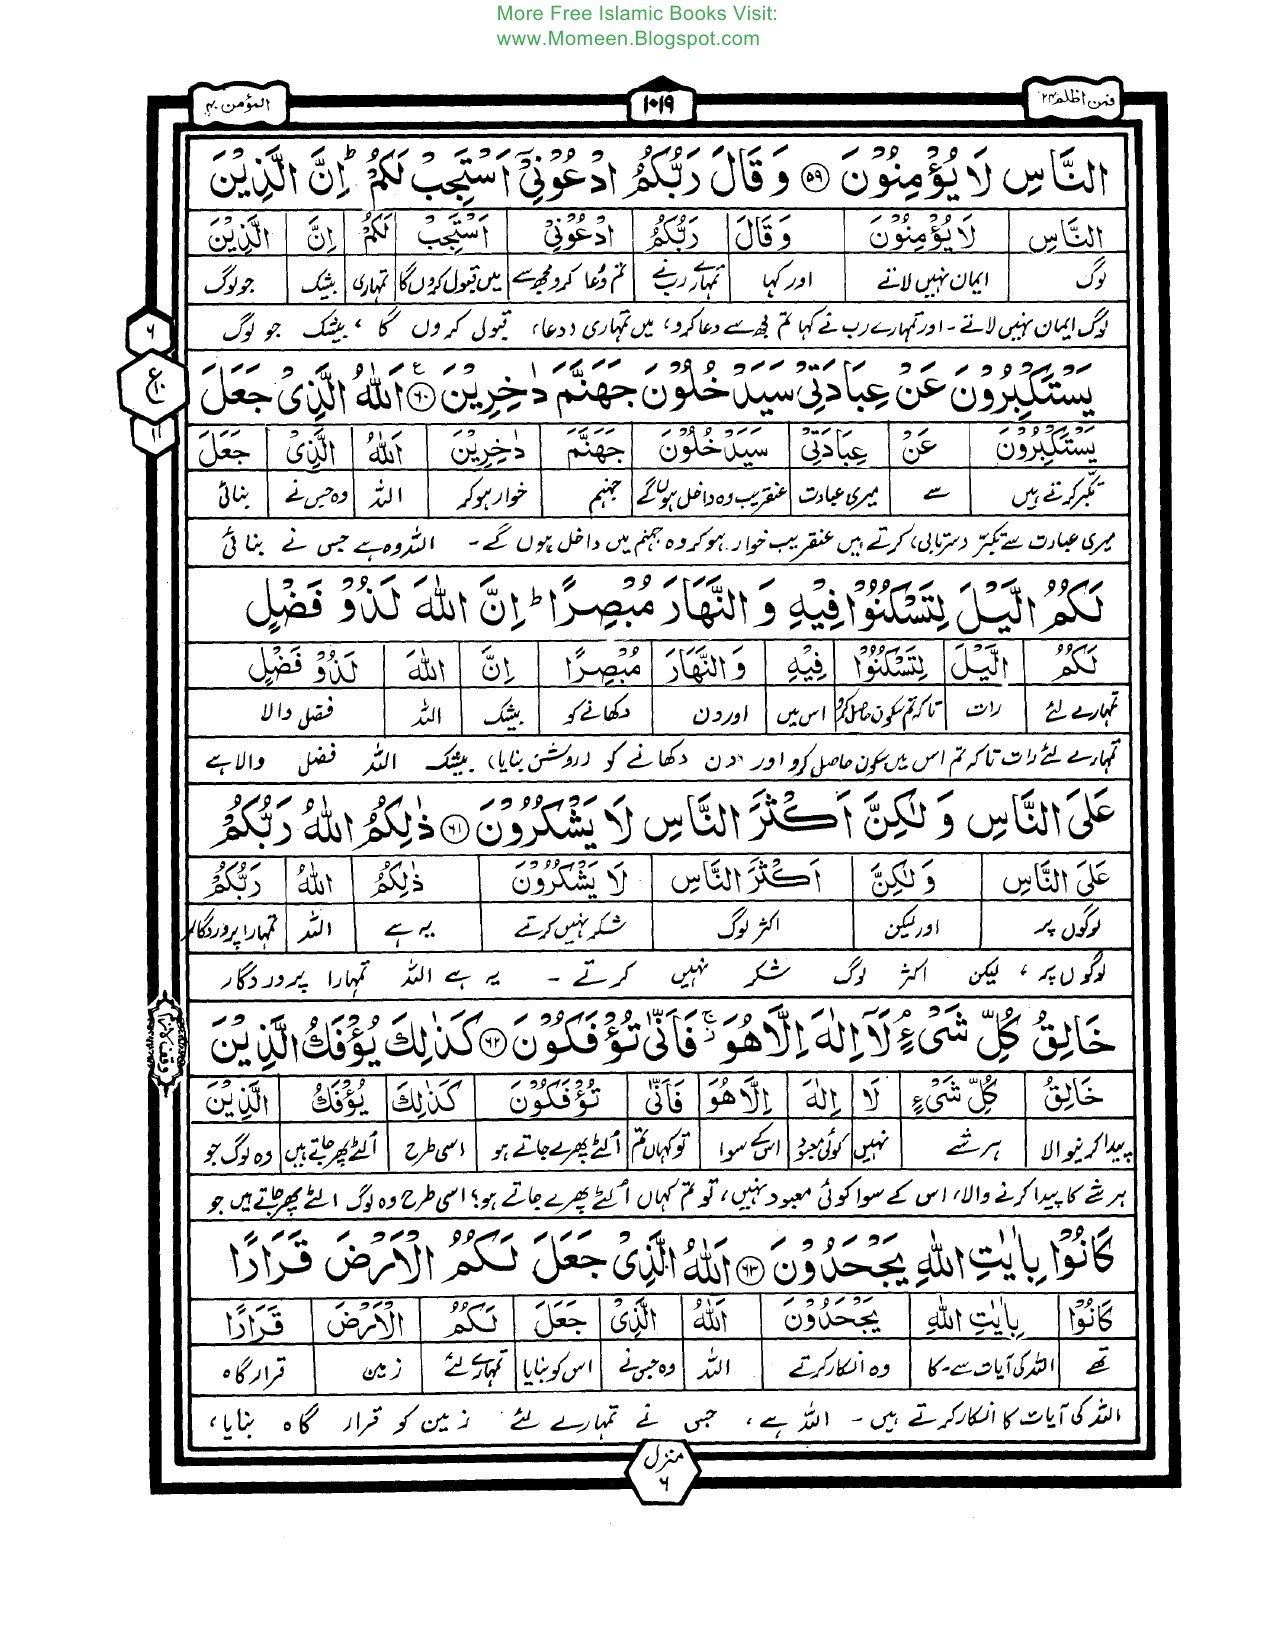 More Free Islamic Books Visit:
www.Momeen.Blogspot.com
فمن اظلم ۲۴ ۱۰۱۹ المؤمن ۴۰
النَّاسِ لَا يُؤْمِنُوْنَ ﴿۵۹﴾ وَ قَالَ رَبُّكُمُ ادْعُوْنِيْٓ اَسْتَجِبْ لَكُمْ ؕ اِنَّ الَّذِيْنَ
النَّاسِ لَا يُؤْمِنُوْنَ وَ قَالَ رَبُّكُمُ ادْعُوْنِيْٓ اَسْتَجِبْ لَكُمْ اِنَّ الَّذِيْنَ
لوگ ایمان نہیں لاتے اور کہا تمہارے رب نے تم دعا کرو مجھ سے میں قبول کروں گا تمہاری بیشک جو لوگ
لوگ ایمان نہیں لاتے ۔ اور تمہارے رب نے کہا تم مجھ سے دعا کرو، میں تمہاری (دعا) قبول کروں گا ، بیشک جو لوگ
۶
ع ۱۰
۱۱
يَسْتَكْبِرُوْنَ عَنْ عِبَادَتِيْ سَيَدْخُلُوْنَ جَهَنَّمَ دٰخِرِيْنَ ﴿۶۰﴾ اَللّٰهُ الَّذِيْ جَعَلَ
يَسْتَكْبِرُوْنَ عَنْ عِبَادَتِيْ سَيَدْخُلُوْنَ جَهَنَّمَ دٰخِرِيْنَ اَللّٰهُ الَّذِيْ جَعَلَ
تکبر کرتے ہیں سے میری عبادت عنقریب وہ داخل ہوں گے جہنم خوار ہو کر اللہ وہ جس نے بنائی
میری عبادت سے تکبر (سرتابی) کرتے ہیں عنقریب خوار ہو کر وہ جہنم میں داخل ہوں گے ۔ اللہ وہ ہے جس نے بنائی
لَكُمُ الَّيْلَ لِتَسْكُنُوْا فِيْهِ وَ النَّهَارَ مُبْصِرًا ؕ اِنَّ اللّٰهَ لَذُوْ فَضْلٍ
لَكُمُ الَّيْلَ لِتَسْكُنُوْا فِيْهِ وَ النَّهَارَ مُبْصِرًا اِنَّ اللّٰهَ لَذُوْ فَضْلٍ
تمہارے لئے رات تاکہ تم سکون حاصل کرو اس میں اور دن دکھانے کو بیشک اللہ فضل والا
تمہارے لئے رات تاکہ تم اس میں سکون حاصل کرو اور دن دکھانے کو (روشن بنایا) بیشک اللہ فضل والا ہے
عَلَى النَّاسِ وَ لٰكِنَّ اَكْثَرَ النَّاسِ لَا يَشْكُرُوْنَ ﴿۶۱﴾ ذٰلِكُمُ اللّٰهُ رَبُّكُمْ
عَلَى النَّاسِ وَ لٰكِنَّ اَكْثَرَ النَّاسِ لَا يَشْكُرُوْنَ ذٰلِكُمُ اللّٰهُ رَبُّكُمْ
لوگوں پر اور لیکن اکثر لوگ شکر نہیں کرتے یہ ہے اللہ تمہارا پروردگار
لوگوں پر ، لیکن اکثر لوگ شکر نہیں کرتے ۔ یہ ہے اللہ تمہارا پروردگار
خَالِقُ كُلِّ شَيْءٍ ۘ لَآ اِلٰهَ اِلَّا هُوَ ۚ فَاَنّٰى تُؤْفَكُوْنَ ﴿۶۲﴾ كَذٰلِكَ يُؤْفَكُ الَّذِيْنَ
خَالِقُ كُلِّ شَيْءٍ لَا اِلٰهَ اِلَّا هُوَ فَاَنّٰى تُؤْفَكُوْنَ كَذٰلِكَ يُؤْفَكُ الَّذِيْنَ
پیدا کرنیوالا ہر شے نہیں کوئی معبود اس کے سوا تو کہاں تم الٹے پھرے جاتے ہو اسی طرح الٹے پھر جاتے ہیں وہ لوگ جو
ہر شے کا پیدا کرنے والا، اس کے سوا کوئی معبود نہیں، تو تم کہاں الٹے پھرے جاتے ہو؟ اسی طرح وہ لوگ الٹے پھر جاتے ہیں جو
كَانُوْا بِاٰيٰتِ اللّٰهِ يَجْحَدُوْنَ ﴿۶۳﴾ اَللّٰهُ الَّذِيْ جَعَلَ لَكُمُ الْاَرْضَ قَرَارًا
كَانُوْا بِاٰيٰتِ اللّٰهِ يَجْحَدُوْنَ اَللّٰهُ الَّذِيْ جَعَلَ لَكُمُ الْاَرْضَ قَرَارًا
تھے اللہ کی آیات سے ۔ کا وہ انکار کرتے اللہ وہ جس نے اس کو بنایا تمہارے لئے زمین قرار گاہ
اللہ کی آیات کا انکار کرتے ہیں ۔ اللہ ہے ، جس نے تمہارے لئے زمین کو قرار گاہ بنایا ،
منزل ۶